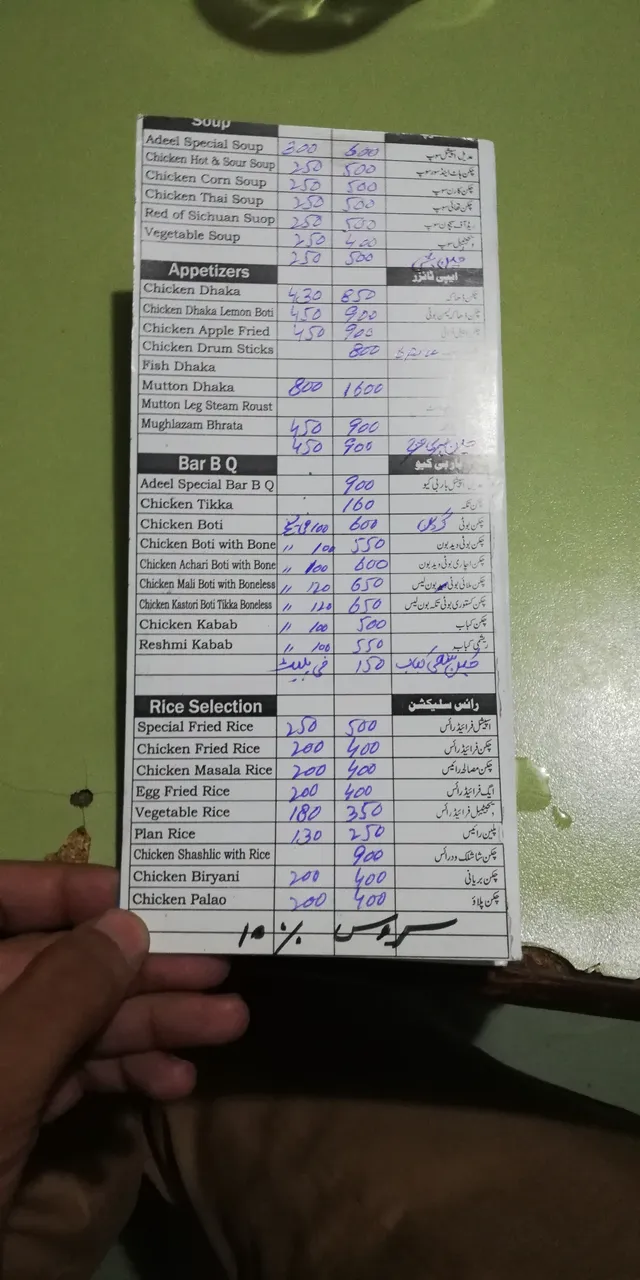 Soup
Adeel Special Soup 300 600 عدیل اسپیشل سوپ
Chicken Hot & Sour Soup 250 500 چکن ہاٹ اینڈ سور سوپ
Chicken Corn Soup 250 500 چکن کارن سوپ
Chicken Thai Soup 250 500 چکن تھائی سوپ
Red of Sichuan Suop 250 500
Vegetable Soup 250 400 ویجیٹیبل سوپ
250 500
Appetizers ایپی ٹائزر
Chicken Dhaka 430 850 چکن ڈھاکہ
Chicken Dhaka Lemon Boti 450 900 چکن ڈھاکہ لیمن بوٹی
Chicken Apple Fried 450 900
Chicken Drum Sticks 800
Fish Dhaka
Mutton Dhaka 800 1600
Mutton Leg Steam Roust
Mughlazam Bhrata 450 900
450 900
Bar B Q بار بی کیو
Adeel Special Bar B Q 900 عدیل اسپیشل بار بی کیو
Chicken Tikka 160 چکن تکہ
Chicken Boti 100 600 چکن بوٹی
Chicken Boti with Bone " 100 550 چکن بوٹی ود بون
Chicken Achari Boti with Bone " 100 600 چکن اچاری بوٹی ود بون
Chicken Mali Boti with Boneless " 120 650 چکن ملائی بوٹی بون لیس
Chicken Kastori Boti Tikka Boneless " 120 650 چکن کستوری بوٹی تکہ بون لیس
Chicken Kabab " 100 500 چکن کباب
Reshmi Kabab " 100 550 ریشمی کباب
فی پلیٹ 150 کباب
Rice Selection رائس سلیکشن
Special Fried Rice 250 500 اسپیشل فرائیڈ رائس
Chicken Fried Rice 200 400 چکن فرائیڈ رائس
Chicken Masala Rice 200 400 چکن مصالحہ رائیس
Egg Fried Rice 200 400 ایگ فرائیڈ رائس
Vegetable Rice 180 350 ویجیٹیبل فرائیڈ رائس
Plan Rice 130 250 پلین رائیس
Chicken Shashlic with Rice 900 چکن شاشلک ود رائس
Chicken Biryani 200 400 چکن بریانی
Chicken Palao 200 400 چکن پلاؤ
سروس 10%